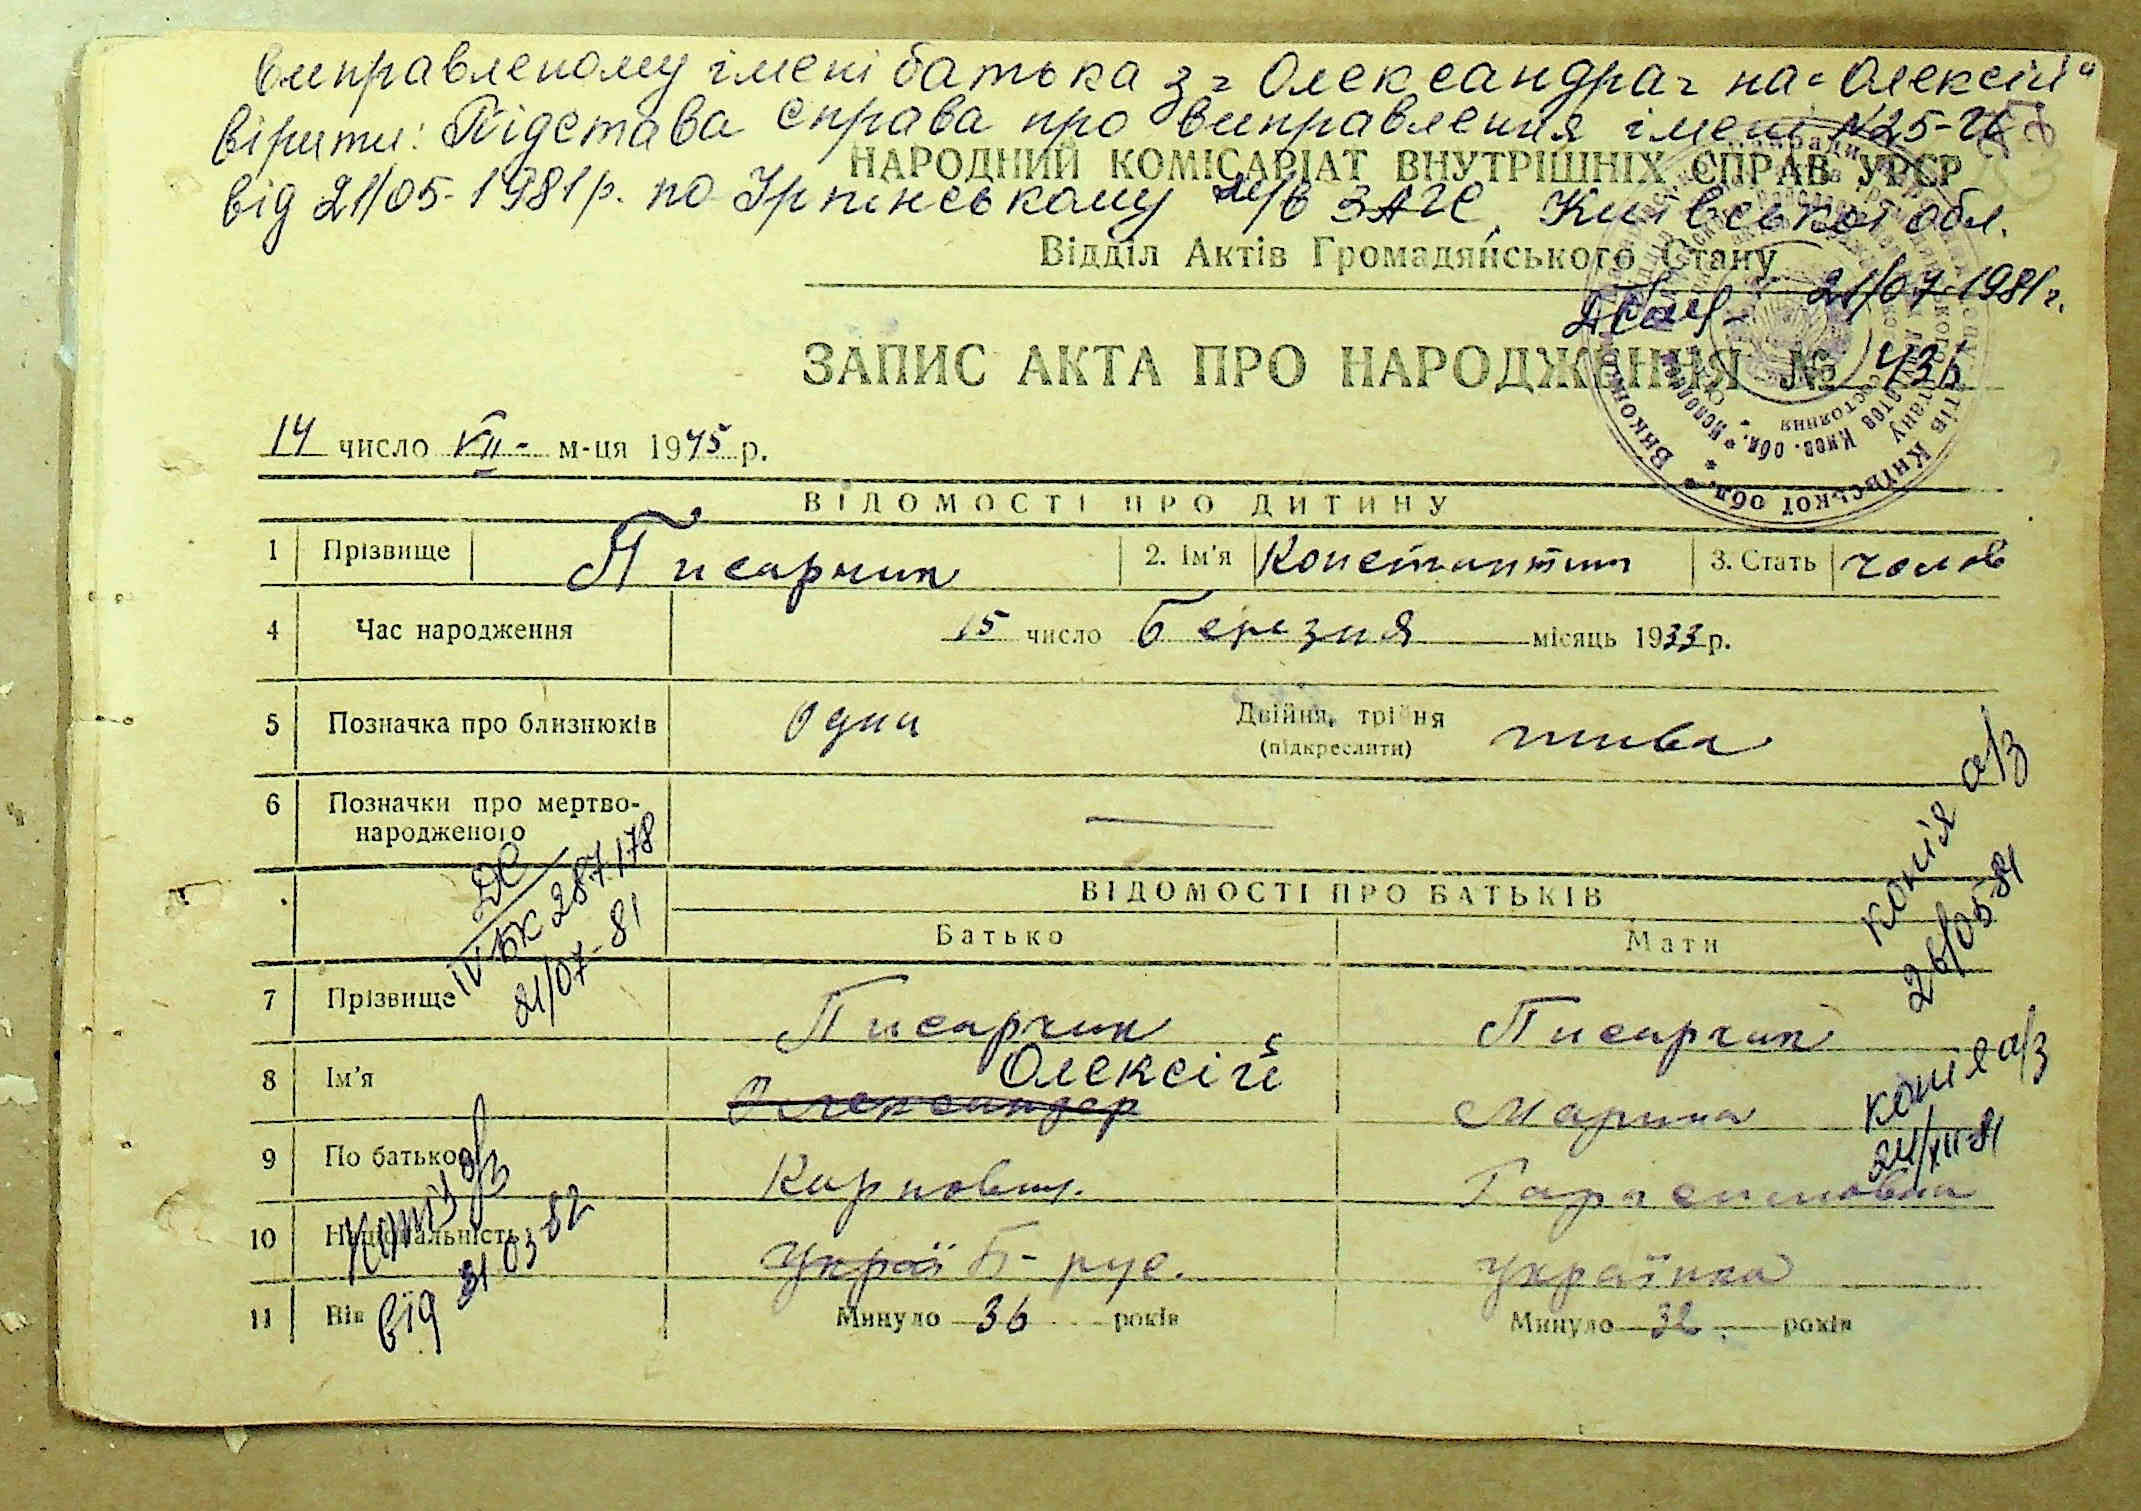 Виправленому імені батька з "Олександра" на "Олексій"
вірити: Підстава справа про виправлення імені N25-
від 21/05-1981р. по Ірпінському м/в ЗАГС Київської обл.
НАРОДНИЙ КОМІСАРІАТ ВНУТРІШНІХ СПРАВ УРСР
Відділ Актів Громадянського Стану
21/07 1981г.
ЗАПИС АКТА ПРО НАРОДЖЕННЯ № 436
14 число VII- м-ця 1945 р.
ВІДОМОСТІ ПРО ДИТИНУ
1 Прізвище Писарчик 2. Ім'я Константин 3. Стать чолов
4 Час народження 15 число Березня місяць 1933 р.
5 Позначка про близнюків Одна Двійня, трійня
(підкреслити)
6 Позначки про мертво-
народженого —
ДС
IV БК 287178
21/07-81
копія а/з
26/05-81
ВІДОМОСТІ ПРО БАТЬКІВ
Батько Мати
7 Прізвище Писарчик Писарчик
Олексій
8 Ім'я Олександер Марина
копія а/з
24/XII-81
9 По батькові Карпович. Гарасимовна
10 Національність Украї Б-рус. Українка
11 Вік Минуло 36 років Минуло 32 років
від 31.03 82